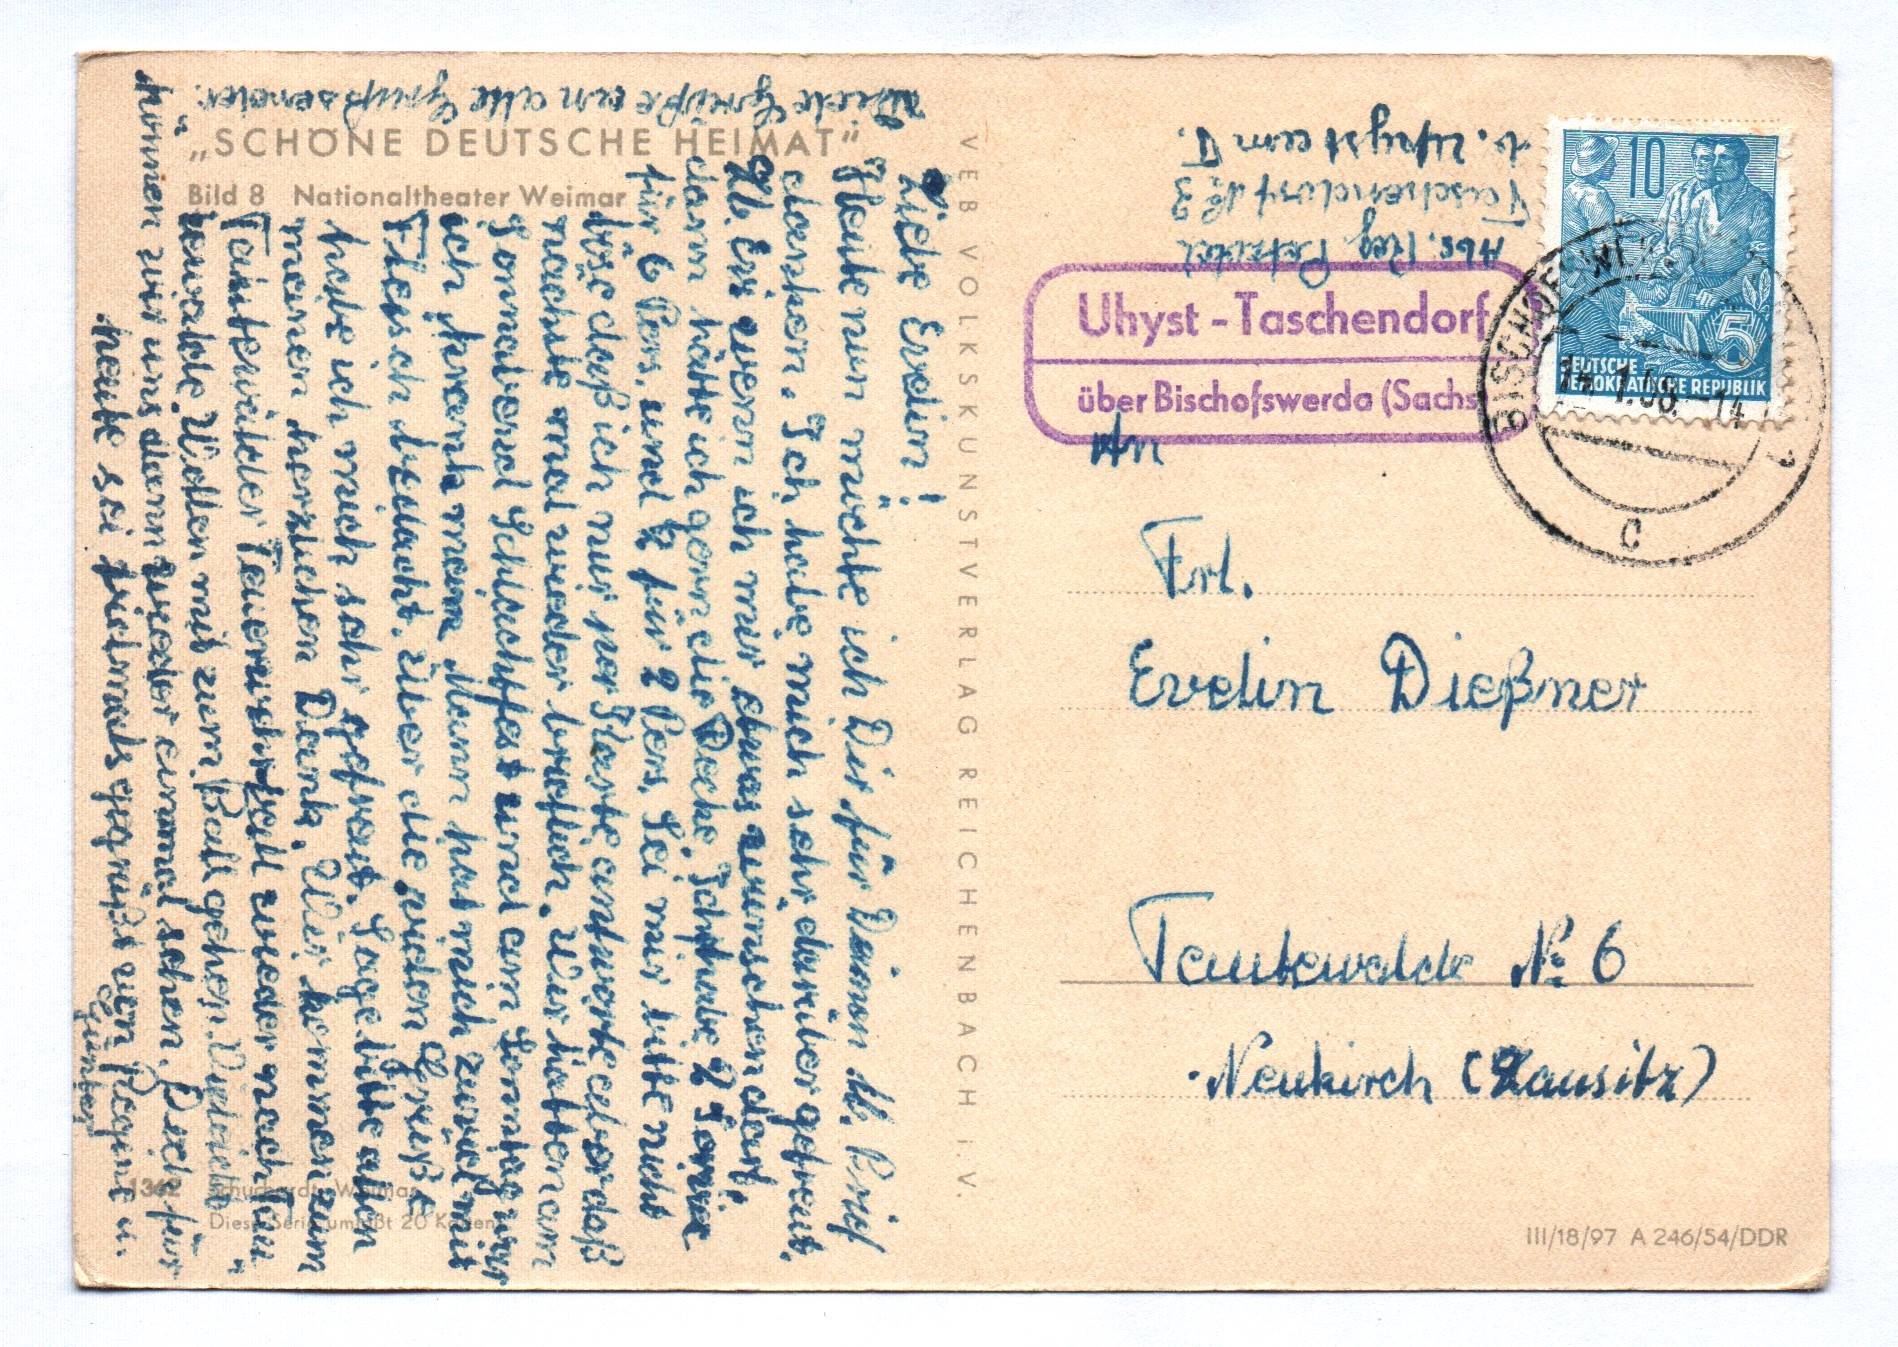 „SCHÖNE DEUTSCHE HEIMAT"
Bild 8 Nationaltheater Weimar
Viele Grüße an alle Grußsender.
Liebe Evelin!
Heute nun möchte ich Dir für Deinen lb. Brief
danken. Ich habe mich sehr darüber gefreut.
Ev. wenn ich mir etwas wünschen darf,
dann hätte ich gern die Decke. Ich habe 2
für 6 Pers. und 2 für 2 Pers. Sei mir bitte nicht
böse daß ich nur per Karte antworte aber daß
nächste mal wieder brieflich. Wir hatten am
Sonnabend Schlachtfest und am Sonntag war
ich krank mein Mann hat mich zuviel mit
Fleisch bedacht. Über die vielen Grüße
habe ich mich sehr gefreut. Sage bitte allen
meinen herzlichen Dank. Wir kommen zum
Tautewalder Feuerwehrball wieder nach Tau-
tewalde. Wollen mit zum Ball gehen. Vielleicht
können wir uns dann wieder einmal sehen. Doch für
heute sei vielmals gegrüßt von Regina u.
Günter
1362 Schuchardt, Weimar
Diese Serie umfaßt 20 Karten
VEB VOLKSKUNSTVERLAG REICHENBACH i. V.
Abs. Reg.
Taschendorf No 3
b. Uhyst am T.
Uhyst - Taschendorf
über Bischofswerda (Sachs
10
5
DEUTSCHE
DEMOKRATISCHE REPUBLIK
BISCHOFSWERDA
-14
c
An
Frl.
Evelin Dießner
Tautewalde No 6
Neukirch (Lausitz)
III/18/97 A 246/54/DDR